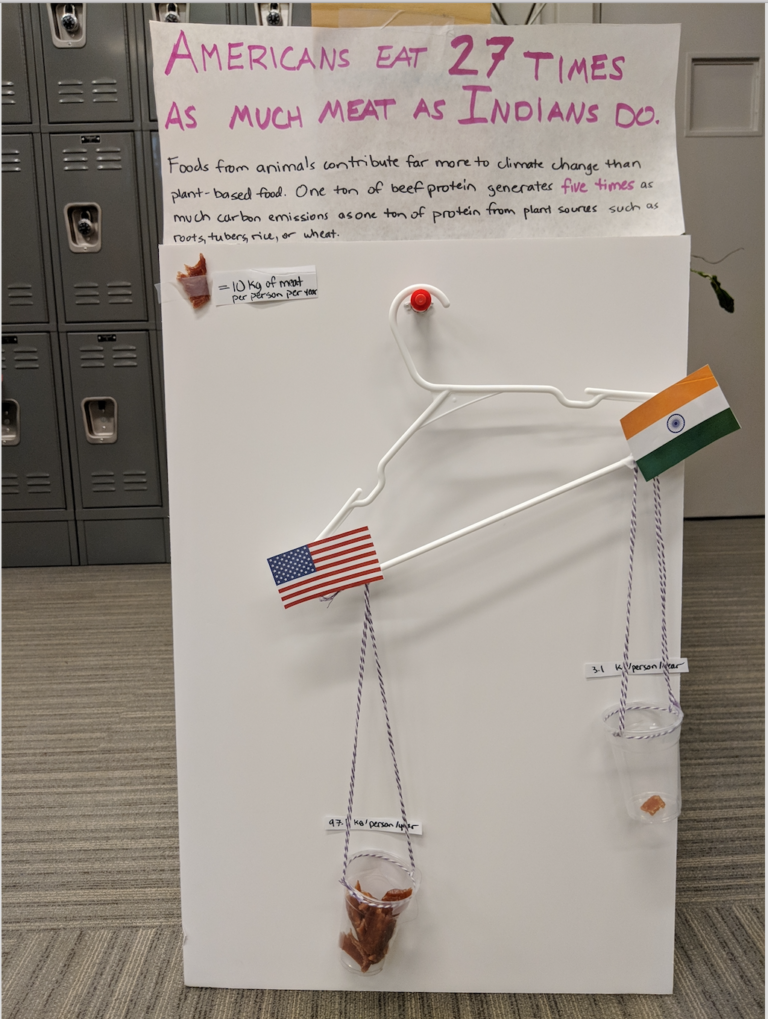 AMERICANS EAT 27 TIMES
AS MUCH MEAT AS INDIANS DO.
Foods from animals contribute far more to climate change than
plant-based food. One ton of beef protein generates five times as
much carbon emissions as one ton of protein from plant sources such as
roots, tubers, rice, or wheat.
= 10 Kg of meat
per person per year
3.1 Kg/person/year
97. kg/person/year